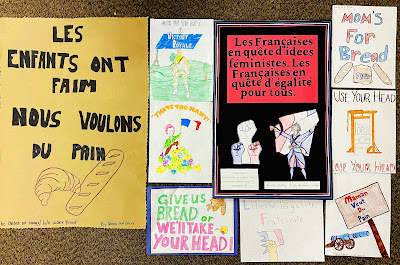 LES
ENFANTS ONT
FAIM
NOUS VOULONS
DU PAIN
VICTORY
ROYALE
THAT'S TOO MANY!
GIVE US
BREAD OR
WE'LL TAKE
YOUR HEAD!
Les Françaises
en quête d'idées
féministes. Les
Françaises en
quête d'égalité
pour tous.
MOM'S
FOR
Bread
USE YOUR HEAD
LOSE YOUR HEAD!
Maman
Veut Du
Pain